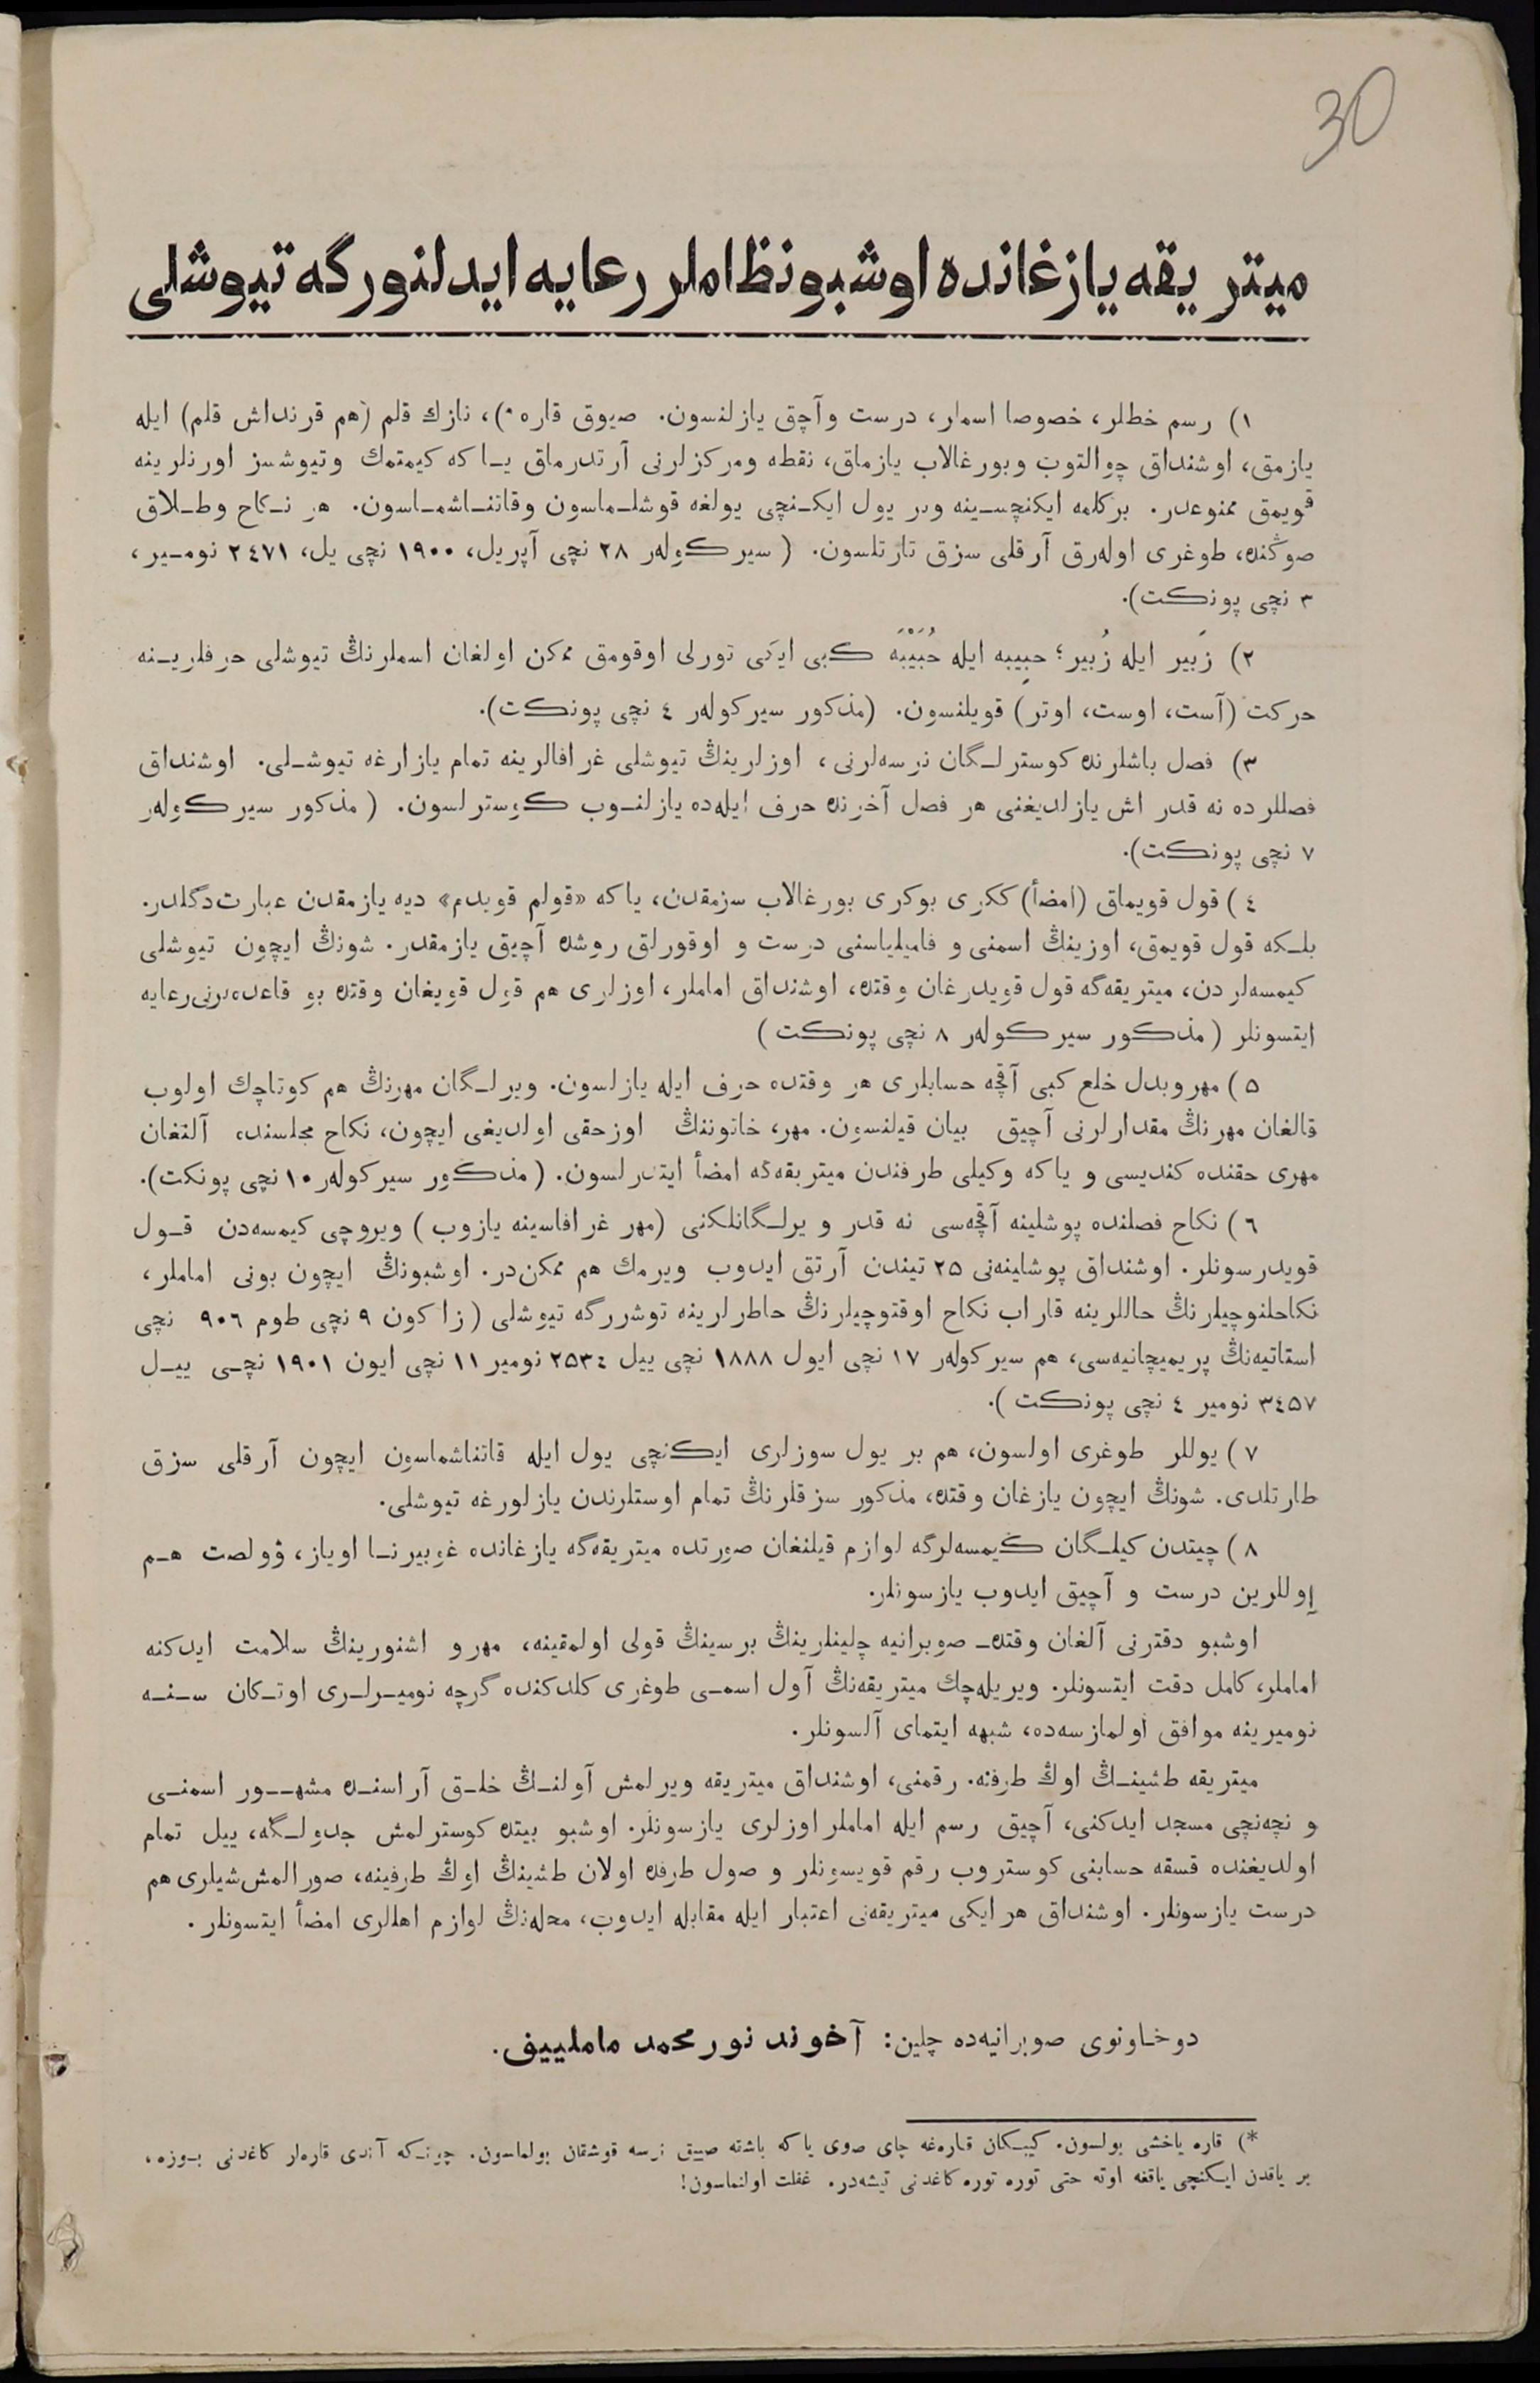 30
ميتريقه يازغانده اوشبو نظاملر رعايه ايدلنورگه تيوشلی
١) رسم خطلر، خصوصا اسملر، درست وآچق يازلنسون. صيوق قاره *)، نازك قلم (هم قرنداش قلم) ايله
يازمق، اوشنداق چوالتوب وبورغالاب يازماق، نقطه ومركزلرنی آرتدرماق يــا كه كيمتمك وتيوشسز اورنلرينه
قويمق ممنوعدر. بركلمه ايكنچســينه وبر يول ايكــنچی يولغه قوشلــماسون وقاتنــاشمــاسون. هر نــكاح وطــلاق
صوڭنده، طوغری اولەرق آرقلی سزق تارتلسون. (سيركولەر ٢٨ نچی آپريل، ١٩٠٠ نچی يل، ٢٤٧١ نومــير،
٣ نچی پونكت).
٢) زَبير ايله زُبير؛ حبِيبه ايله حُبَيْبَه كبی ايكی تورلی اوقومق ممكن اولغان اسملرنڭ تيوشلی حرفلريــنه
حركت (آست، اوست، اوتر) قويلنسون. (مذكور سيركولەر ٤ نچی پونكت).
٣) فصل باشلرنده كوسترلــگان نرسەلرنی، اوزلرينڭ تيوشلی غرافالرينه تمام يازارغه تيوشــلی. اوشنداق
فصللرده نه قدر اش يازلديغنی هر فصل آخرنده حرف ايلەده يازلنــوب كوسترلسون. (مذكور سيركولەر
٧ نچی پونكت).
٤) قول قويماق (امضأ) ككری بوكری بورغالاب سزمقدن، ياكه «قولم قويدم» ديه يازمقدن عبارت دگلدر.
بلــكه قول قويمق، اوزينڭ اسمنی و فاميلياسنی درست و اوقورلق روشده آچيق يازمقدر. شونڭ ايچون تيوشلی
كيمسەلردن، ميتريقەگه قول قويدرغان وقتده، اوشنداق اماملر، اوزلری هم قول قويغان وقتده بو قاعدەلرنی رعايه
ايتسونلر (مذكور سيركولەر ٨ نچی پونكت)
۵) مهر وبدل خلع كبی آقچه حسابلری هر وقتده حرف ايله يازلسون. ويرلــگان مهرنڭ هم كوتاچك اولوب
قالغان مهرنڭ مقدارلرنی آچيق بيان قيلنسون. مهر، خاتوننڭ اوزحقی اولديغی ايچون، نكاح مجلسنده آلنغان
مهری حقنده كنديسی و ياكه وكيلی طرفندن ميتريقەگه امضأ ايتدرلسون. (مذكور سيركولەر ١٠ نچی پونكت).
٦) نكاح فصلنده پوشلينه آقچەسی نه قدر ويرلــگانلكنی (مهر غرافاسينه يازوب) ويروچی كيمسەدن قــول
قويدرسونلر. اوشنداق پوشلينەنی ٢۵ تيندن آرتق ايدوب ويرمك هم ممكن در. اوشبونڭ ايچون بونی اماملر،
نكاحلنوچيلرنڭ حاللرينه قاراب نكاح اوقتوچيلرنڭ خاطرلرينه توشررگه تيوشلی (زاكون ٩ نچی طوم ٩٠٦ نچی
استاتيەنڭ پريميچانيەسی، هم سيركولەر ١٧ نچی ايول ١٨٨٨ نچی ييل ٢۵٣٤ نومير ١١ نچی ايون ١٩٠١ نچــی ييــل
٣٤۵٧ نومير ٤ نچی پونكت).
٧) يوللر طوغری اولسون، هم بر يول سوزلری ايكنچی يول ايله قاتناشماسون ايچون آرقلی سزق
طارتلدی. شونڭ ايچون يازغان وقتده، مذكور سزقلرنڭ تمام اوستلرندن يازلورغه تيوشلی.
٨) چيتدن كيلــگان كيمسەلرگه لوازم قيلنغان صورتده ميتريقەگه يازغانده غوبيرنــا اوياز، ۋولصت هــم
اِوللرين درست و آچيق ايدوب يازسونلر.
اوشبو دفترنی آلغان وقتده صوبرانيه چلينلرينڭ برسينڭ قولی اولمقينه، مهر و اشنورينڭ سلامت ايدكنه
اماملر، كامل دقت ايتسونلر. ويريلەچك ميتريقەنڭ آول اسمــی طوغری كلدكنده گرچه نوميــرلــری اوتــكان ســنــه
نوميرينه موافق اولمازسەده، شبهه ايتمای آلسونلر.
ميتريقه طشينــڭ اوڭ طرفنه. رقمنی، اوشنداق ميتريقه ويرلمش آولنــڭ خلــق آراسنــده مشهــور اسمنــی
و نچەنچی مسجد ايدكنی، آچيق رسم ايله اماملر اوزلری يازسونلر. اوشبو بيتده كوسترلمش جدولــگه، ييل تمام
اولديغنده قسقه حسابنی كوستروب رقم قويسونلر و صول طرفده اولان طشينڭ اوڭ طرفينه، صورالمش شيلری هم
درست يازسونلر. اوشنداق هر ايكی ميتريقەنی اعتبار ايله مقابله ايدوب، محلەنڭ لوازم اهللری امضأ ايتسونلر.
دوخاونوی صوبرانيەده چلين: آخوند نورمحمد ماملييف.
*) قاره ياخشی بولسون. كيبــكان قارەغه چای صوی ياكه باشقه صيق نرسه قوشقان بولماسون. چونــكه آندی قارەلر كاغدنی بــوزه،
بر ياقدن ايــكنچی ياقغه اوته حتی توره توره كاغدنی تيشەدر. غفلت اولنماسون!